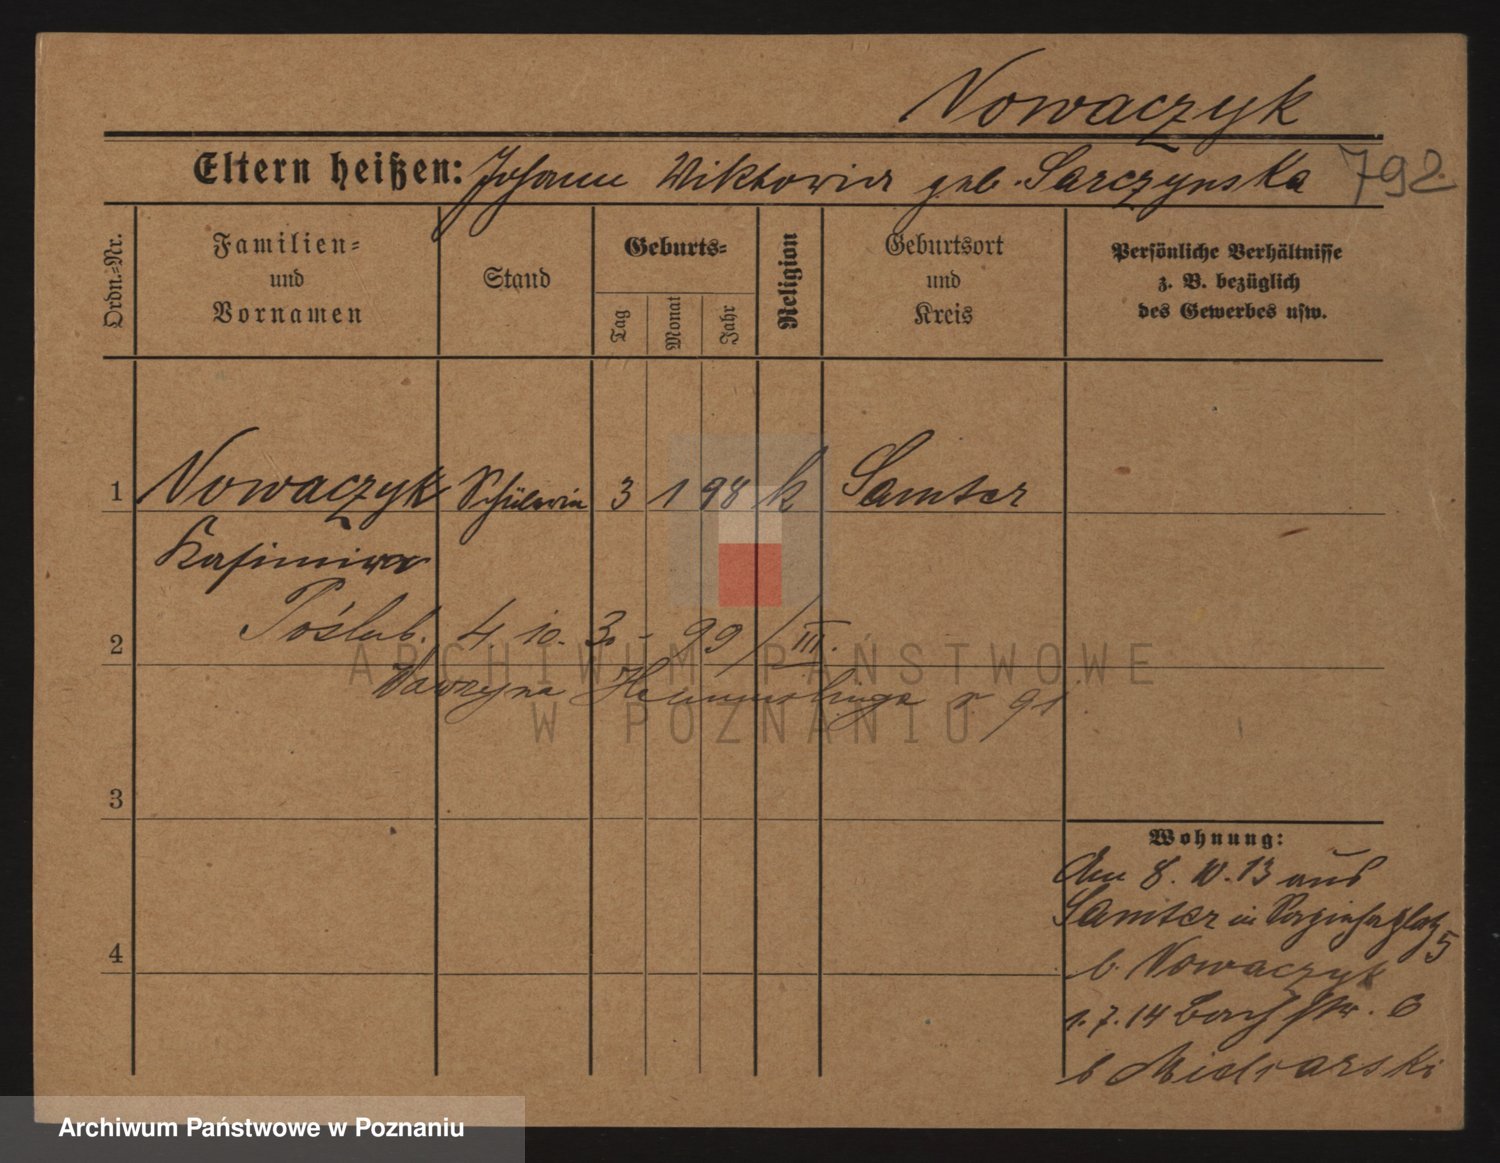 Nowaczyk
Eltern heißen: Johann Wiktoria geb. Sarczynska 792
Ordn.-Nr.
Familien-
und
Vornamen
Stand
Geburts-
Tag
Monat
Jahr
Religion
Geburtsort
und
Kreis
Persönliche Verhältnisse
z. B. bezüglich
des Gewerbes usw.
1 Nowaczyk Schülerin 3 1 98 k Samter
Kasimira
2 Poślub. 4. 10. 3. - 99 / III.
Wawrzyna r 91
ARCHIWUM PAŃSTWOWE
W POZNANIU
3
Wohnung:
Am 8. 10. 13 aus
Samter in 5
4 b. Nowaczyk
1. 7. 14 Bach str. 6
b
Archiwum Państwowe w Poznaniu